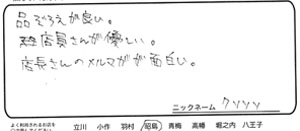 品ぞろえが良い。
店員さんが優しい。
店長さんのメルマガが面白い。
ニックネーム クソソソ
よく利用されるお店を
立川 小作 羽村 昭島 青梅 高幡 堀之内 八王子